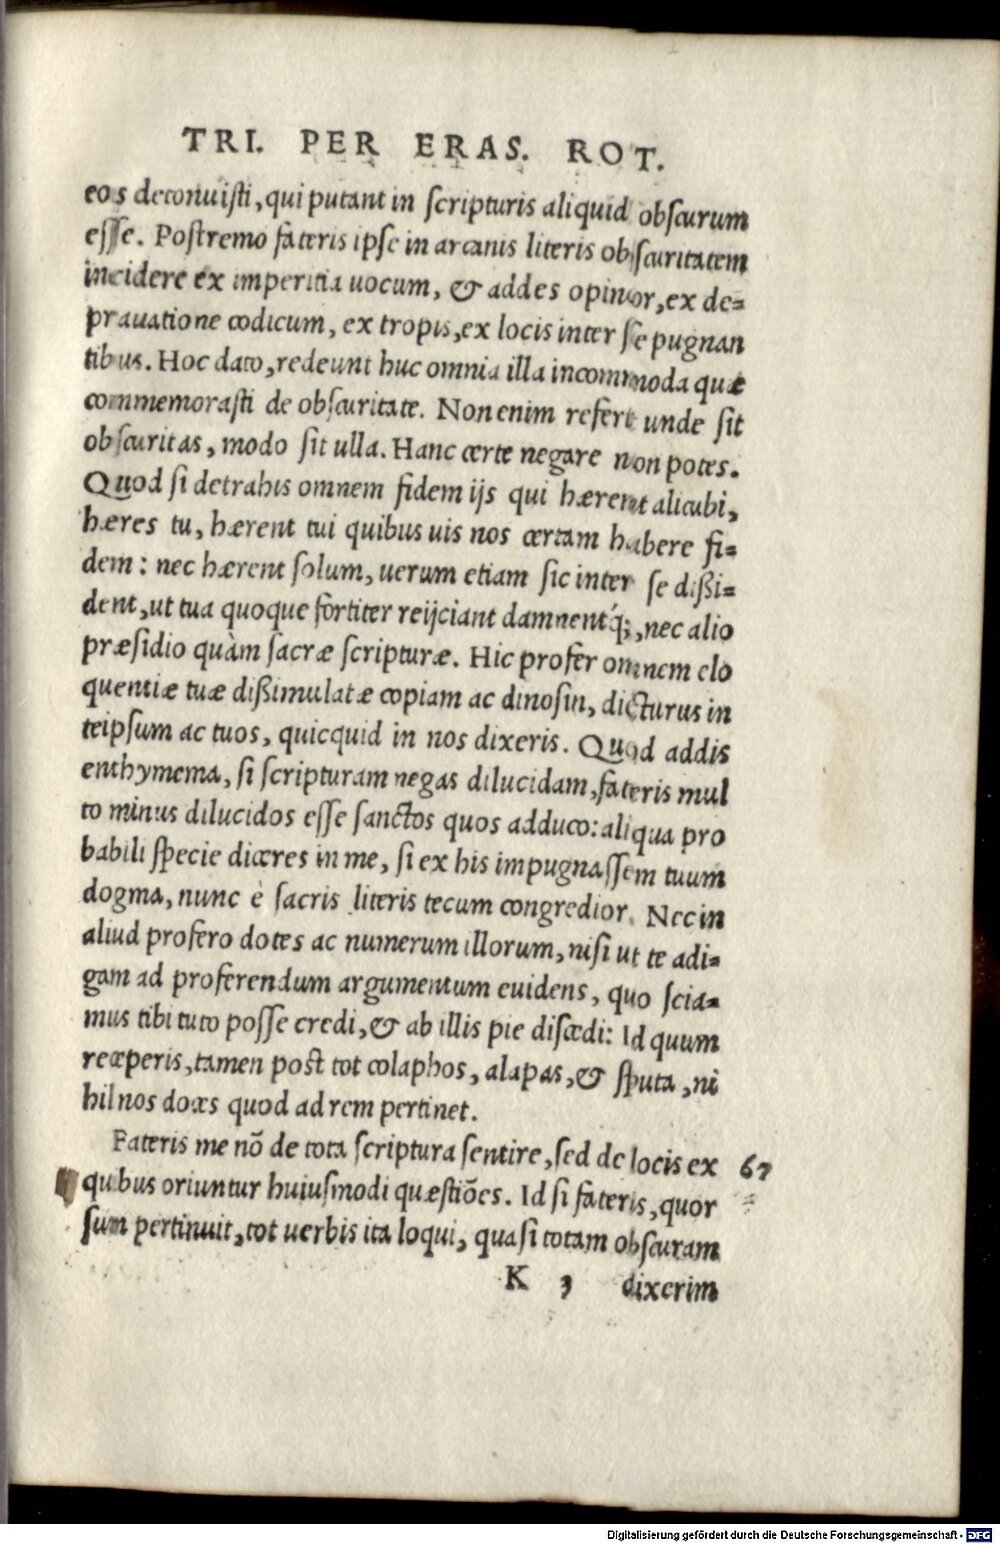 TRI. PER ERAS. ROT.
eos deconuisti, qui putant in scripturis aliquid obscurum
esse. Postremo fateris ipse in arcanis literis obscuritatem
incidere ex imperitia uocum, & addes opinor, ex de=
prauatione codicum, ex tropis, ex locis inter se pugnan
tibus. Hoc dato, redeunt huc omnia illa incommoda quæ
commemorasti de obscuritate. Non enim refert unde sit
obscuritas, modo sit ulla. Hanc certe negare non potes.
Quod si detrahis omnem fidem ijs qui hærent alicubi,
hæres tu, hærent tui quibus uis nos certam habere fi=
dem: nec hærent solum, uerum etiam sic inter se dißi=
dent, ut tua quoque fortiter reijciant damnentq́;, nec alio
præsidio quàm sacræ scripturæ. Hic profer omnem elo
quentiæ tuæ dißimulatæ copiam ac dinosin, dicturus in
teipsum ac tuos, quicquid in nos dixeris. Quod addis
enthymema, si scripturam negas dilucidam, fateris mul
to minus dilucidos esse sanctos quos adduco: aliqua pro
babili specie diceres in me, si ex his impugnassem tuum
dogma, nunc è sacris literis tecum congredior. Nec in
aliud profero dotes ac numerum illorum, nisi ut te adi=
gam ad proferendum argumentum euidens, quo scia=
mus tibi tuto posse credi, & ab illis pie discedi: Id quum
receperis, tamen post tot colaphos, alapas, & sputa, ni
hil nos doces quod ad rem pertinet.
Fateris me nō de tota scriptura sentire, sed de locis ex 67
quibus oriuntur huiusmodi quæstiões. Id si fateris, quor
sum pertinuit, tot uerbis ita loqui, quasi totam obscuram
K 3 dixerim
Digitalisierung gefördert durch die Deutsche Forschungsgemeinschaft - DFG